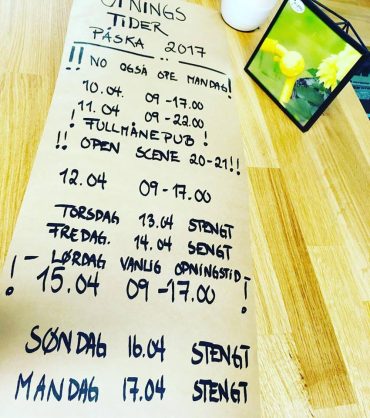 OPNINGS
TIDER
PÅSKA 2017
!! NO OGSÅ OPE MANDAG!
10.04. 09-17.00
11.04 09-22.00
! FULLMÅNEPUB!
!! OPEN SCENE 20-21!!
12.04 09-17.00
TORSDAG 13.04 STENGT
FREDAG. 14.04 SENGT
! - LØRDAG VANLIG OPNINGSTID -
15.04 09-17.00 !
SØNDAG 16.04 STENGT
MANDAG 17.04 STENGT